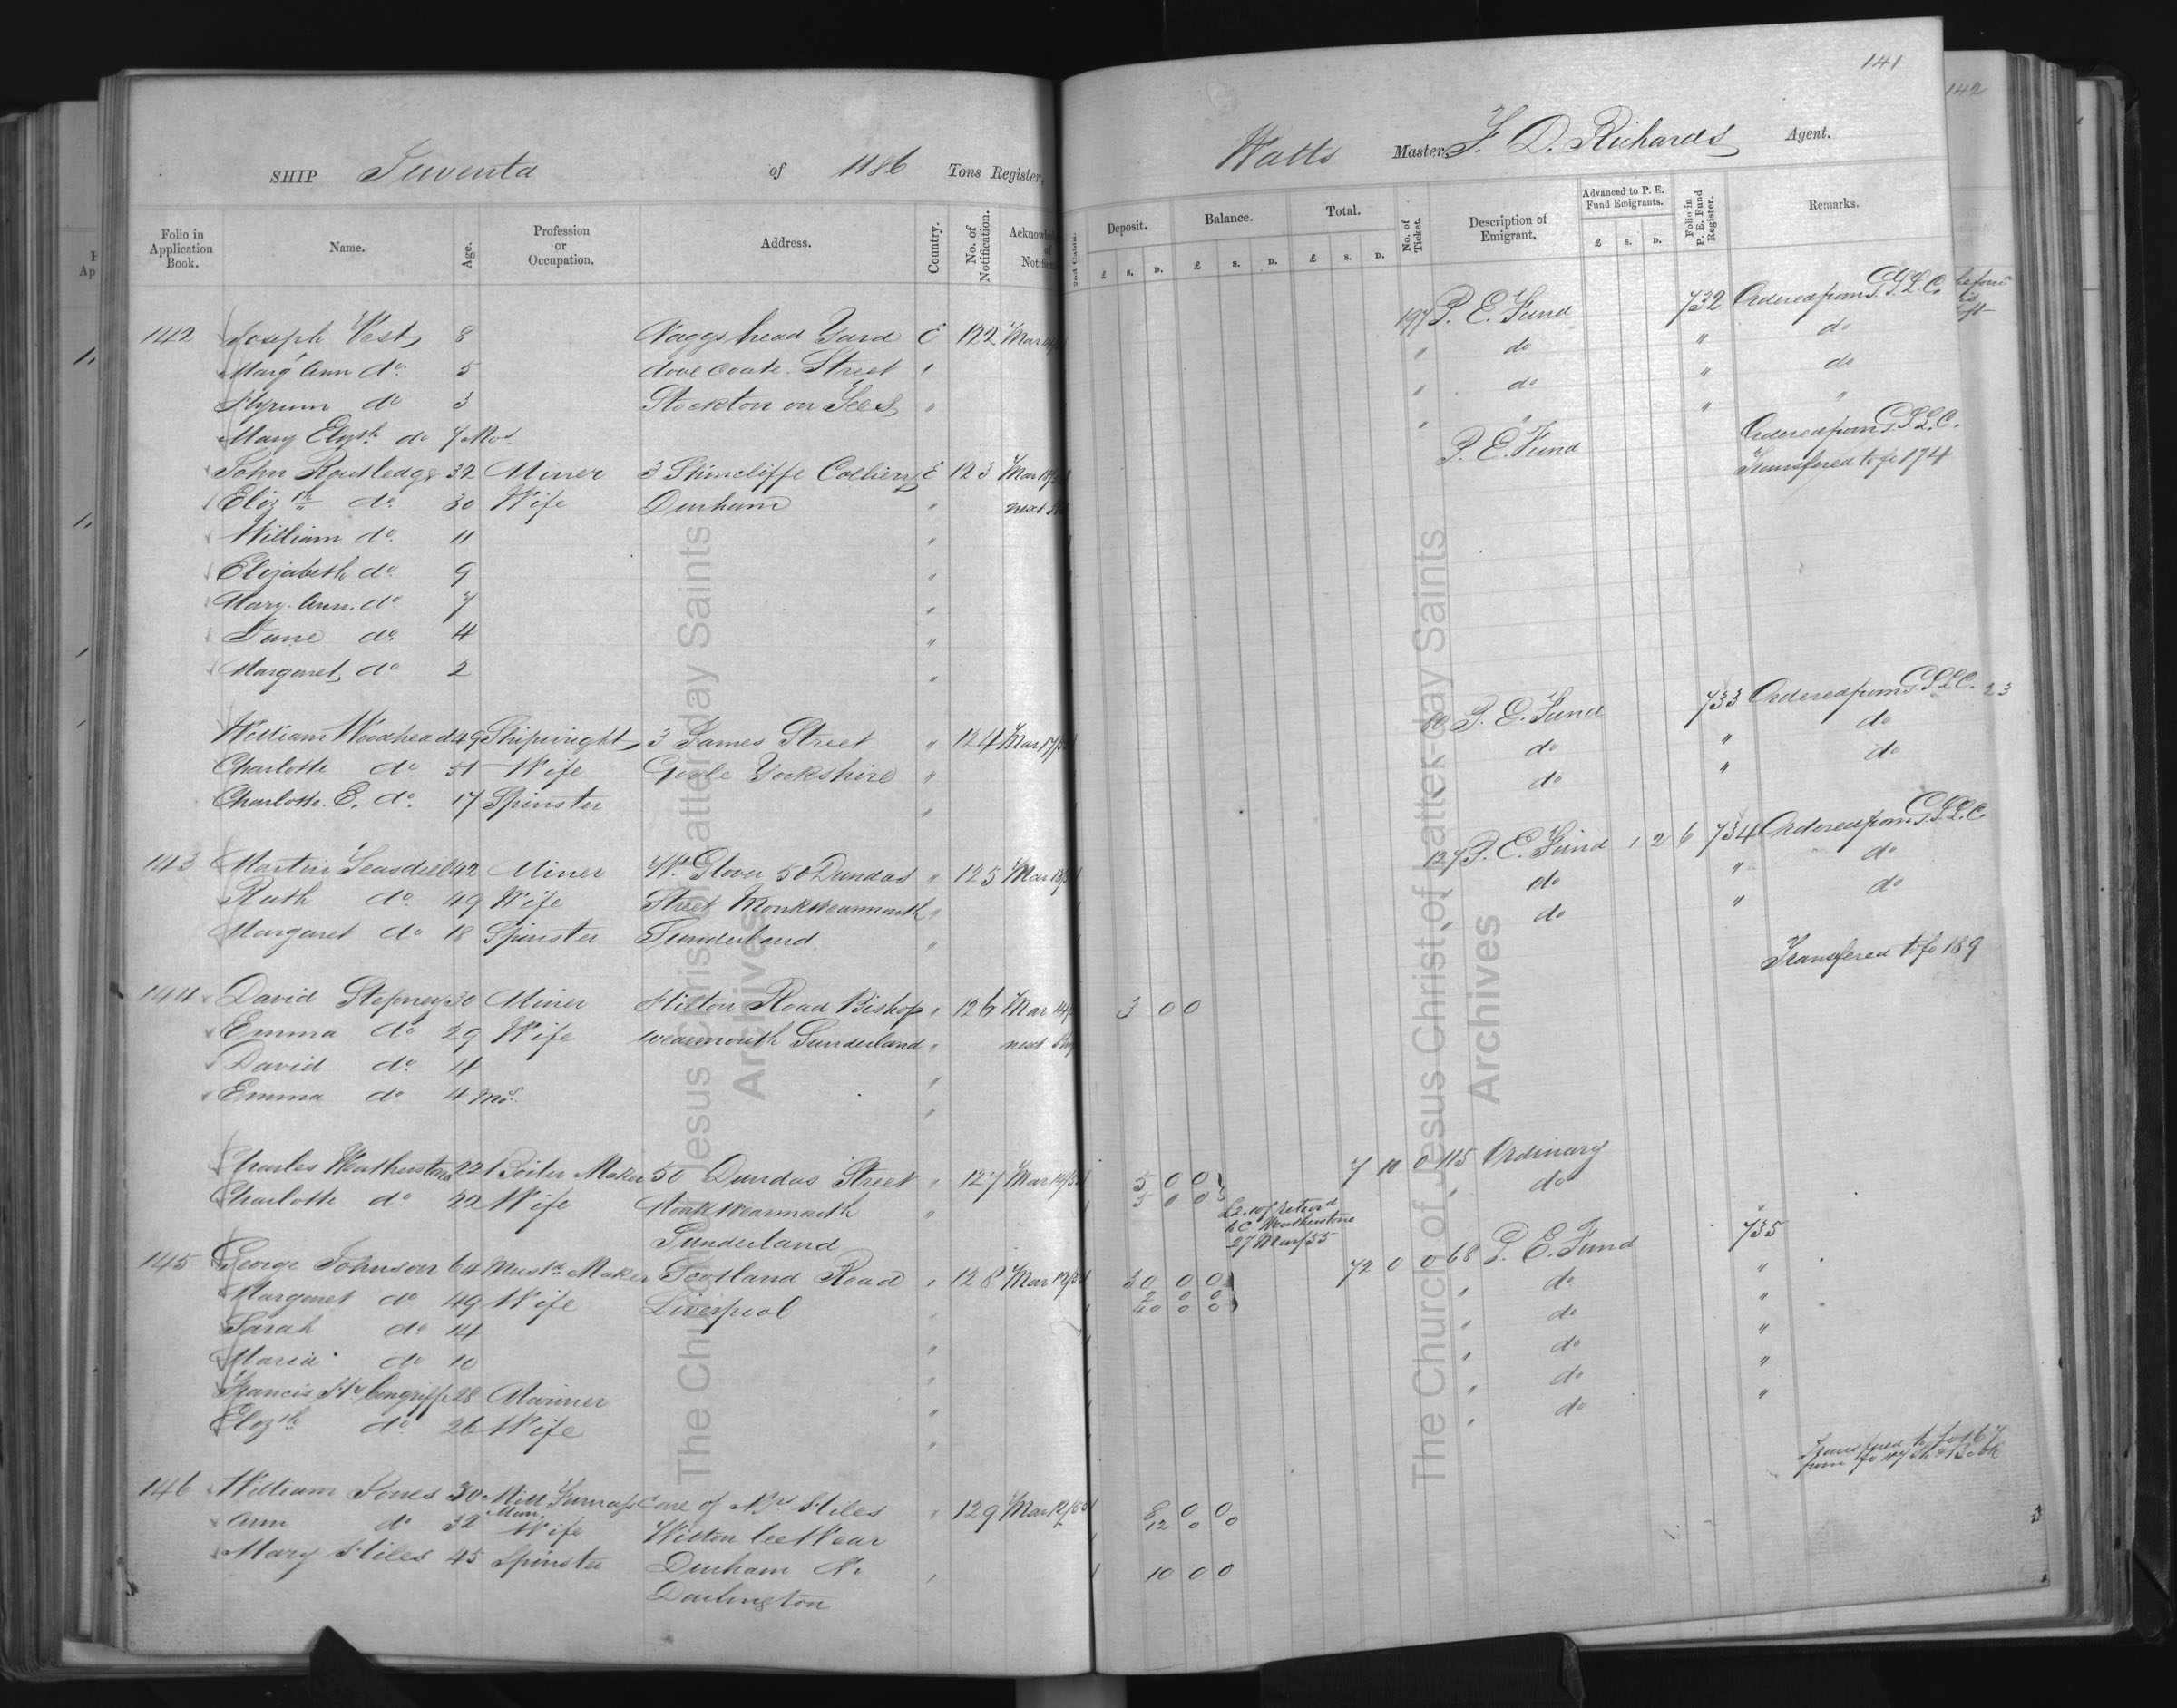 141
142
SHIP Juventa of 1186 Tons Register,
Watts Master, F. D. Richards Agent.
Folio in Application Book. Name. Age. Profession or Occupation. Address. Country. No. of Notification.
2nd Cabin. Deposit. Balance. Total. No. of Ticket. Description of Emigrant. Advanced to P. E. Fund Emigrants. Folio in P. E. Fund Register. Remarks.
£ S. D. £ S. D. £ S. D. £ S. D.
142 Joseph West 8 Naggs head Yard E 122 Mar 197 P. E. Fund 732 Ordered from G. S. L. C.
Marg Ann do 5 dove coate Street " " do " do
Hyrum do 3 Stockton on Tees " " do " do
Mary Elizth do 7 Mos " " " "
John Routledge 32 Miner 3 Shincliffe Colliery E 123 Mar 18 P. E. Fund Ordered from G. S. L. C.
Elizth do 30 Wife Durham " next Transfered to fo 174
William do 11 "
Elizabeth do 9 "
Mary Ann do 7 "
Jane do 4 "
Margaret do 2 "
William Woodhead 49 Shipwright 3 James Street " 124 Mar 17 80 P. E. Fund 733 Ordered from G. S. L. C. 23
Charlotte do 51 Wife Goole Yorkshire " do " do
Charlotte E. do 17 Spinster " do " do
143 Martin Teasdell 42 Miner Wm Glover 50 Dundas " 125 Mar 18 127 P. E. Fund 1 2 6 734 Ordered from G. S. L. C.
Ruth do 49 Wife Street Monkwearmouth " do " do
Margaret do 18 Spinster Sunderland " " do " do
Transfered to fo 189
144 David Stepney 30 Miner Hilton Road Bishop " 126 Mar 14 3 0 0
Emma do 29 Wife wearmouth Sunderland " next Ship
David do 4 "
Emma do 4 Mos "
Charles Weatherstone 22 Boiler Maker 50 Dundas Street " 127 Mar 5 0 0 7 10 0 115 Ordinary
Charlotte do 22 Wife Monkwearmouth " 5 0 0 " do
£2.10/ return'd
to C Weatherstone
27 Mar/55
Sunderland
145 George Johnson 64 Must'd Maker Scotland Road " 128 Mar 30 0 0 72 0 0 68 P. E. Fund 735
Margaret do 49 Wife Liverpool " 2 0 0 " do "
40 0 0
Sarah do 14 " " do "
Maria do 10 " " do "
Francis Hy Congriffe 28 Mariner " " do "
Elizth do 26 Wife " " do "
Transfered to fo 167
146 William Jones 30 Mill Furnace Man Care of Mrs Stiles " 129 Mar 12 8 0 0
Ann do 32 Wife Witton lee Wear 12 0 0
Mary Stiles 45 Spinster Durham Nr " 10 0 0
Darlington
The Church of Jesus Christ of Latter-day Saints
Archives
The Church of Jesus Christ of Latter-day Saints
Archives